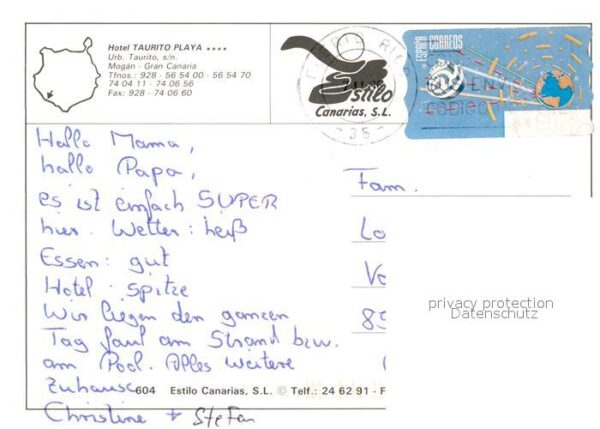 Hotel TAURITO PLAYA ★★★★
Urb. Taurito, s/n.
Mogán - Gran Canaria
Tfnos.: 928 - 56 54 00 - 56 54 70
74 04 11 - 74 06 56
Fax: 928 - 74 06 60
Estilo
Canarias, S.L.
- 35 -
ESPAÑA CORREOS
CODIGO
Hallo Mama,
hallo Papa,
es ist einfach SUPER
hier. Wetter: heiß
Essen: gut
Hotel: spitze
Wir liegen den ganzen
Tag faul am Strand bzw.
am Pool. Alles weitere
Zuhause
Christine + Stefan
Fam.
Lo
Ve
89
privacy protection
Datenschutz
604 Estilo Canarias, S.L. © Telf.: 24 62 91 - F